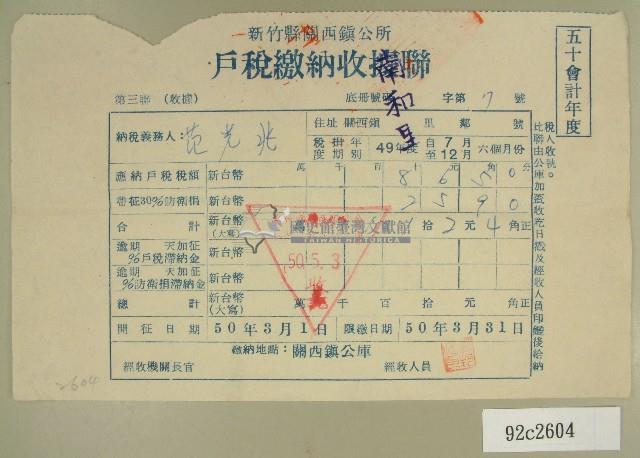 新竹縣關西鎮公所
戶稅繳納收據聯
五十會計年度
南和里
第三聯 (收據)
底冊號碼 字第 7 號
納稅義務人: 范光兆
住址 關西鎮 里 鄰 號
稅捐年度期別 49年度 自7月至12月 六個月份
萬 千 百 十 元 角 分
應納戶稅稅額 新台幣 8 6 5 0
帶征30%防衛捐 新台幣 2 5 9 0
合計 新台幣(大寫) 拾 2 元 4 角正
國史館臺灣文獻館
TAIWAN HISTORICA
逾期 天加征 %戶稅滯納金 新台幣
50.5.3
逾期 天加征 %防衛捐滯納金 新台幣
總計 新台幣(大寫) 萬 千 百 拾 元 角正
開征日期 50年3月1日 限繳日期 50年3月31日
繳納地點: 關西鎮公庫
經收機關長官 經收人員
稅人收執。
此聯由公庫加蓋收訖日戳及經收人員印鑑後給納
2604
92c2604